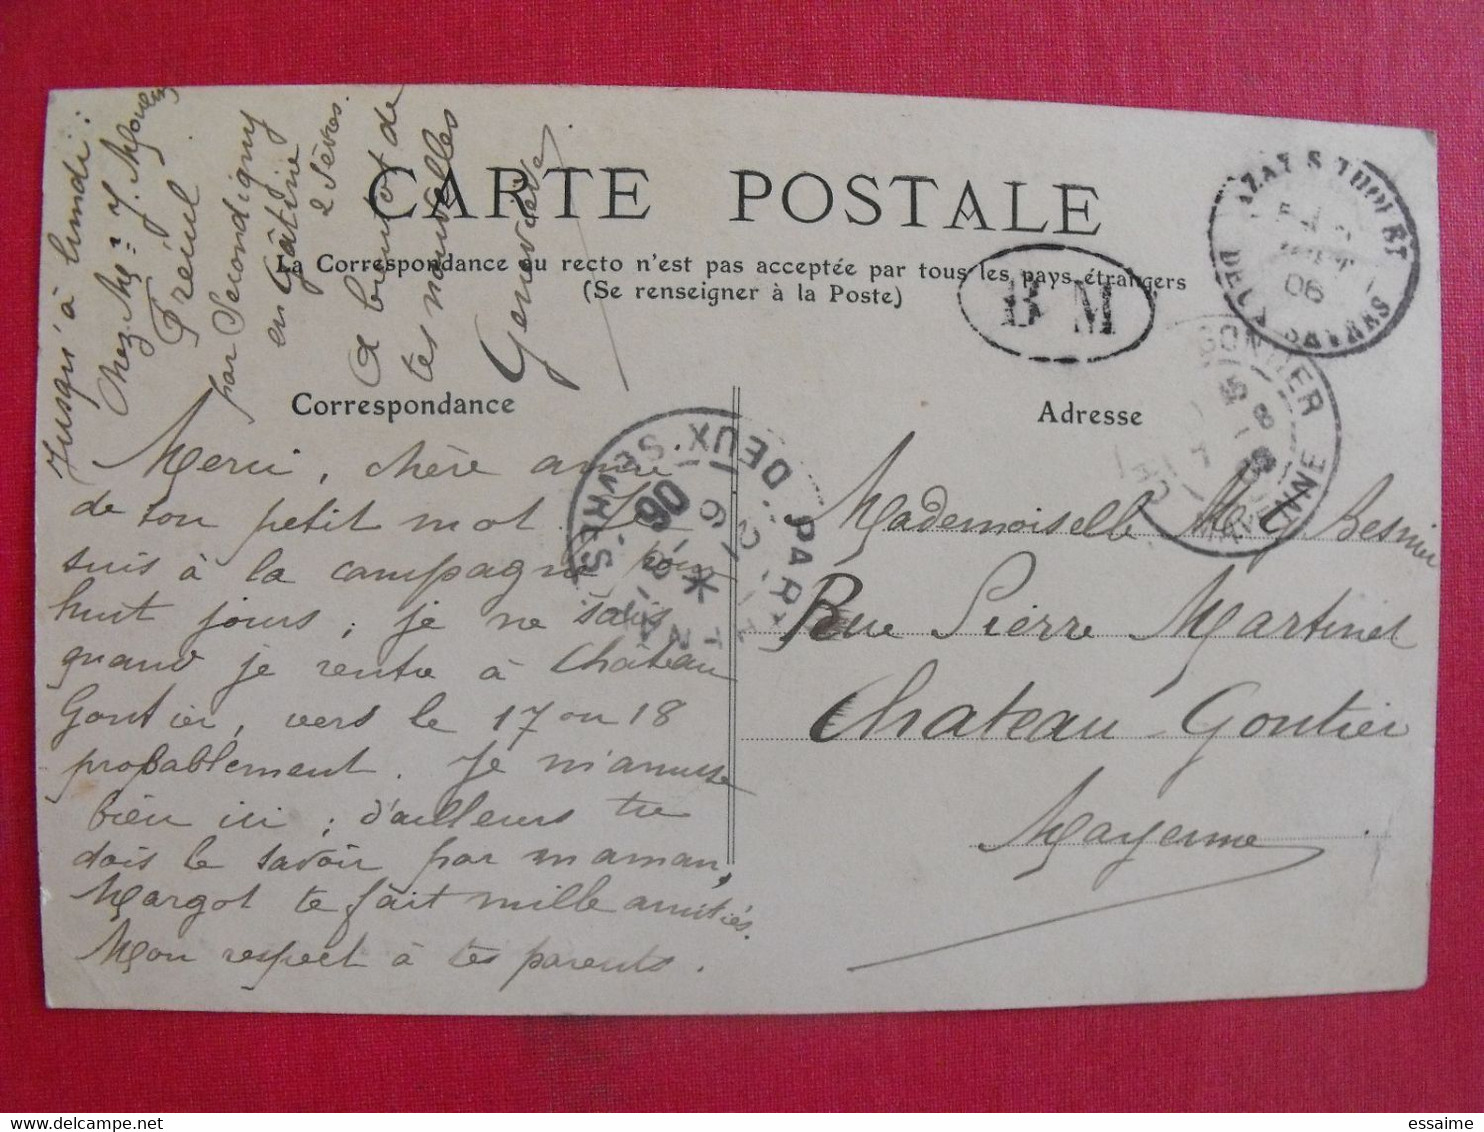 CARTE POSTALE
La Correspondance au recto n'est pas acceptée par tous les pays étrangers
(Se renseigner à la Poste)
Correspondance
Adresse
Jusqu'à lundi :
Chez Mr J.
par Secondigny
en Gâtine
2 Sèvres.
A bientôt de
tes nouvelles
Geneviève
Merci, chère amie
de ton petit mot. Je
suis à la campagne pour
huit jours ; je ne sais
quand je rentre à Château
Gontier, vers le 17 ou 18
probablement. Je m'amuse
bien ici ; d'ailleurs tu
dois le savoir par maman,
Margot te fait mille amitiés.
Mon respect à tes parents.
Mademoiselle M. Besnier
Rue Pierre Martinet
Chateau-Gontier
Mayenne
AZAY S THOUET
06
DEUX SEVRES
B M
GONTIER
MAYENNE
PARTHENAY
DEUX-SEVRES
06
essaime
delcampe.net